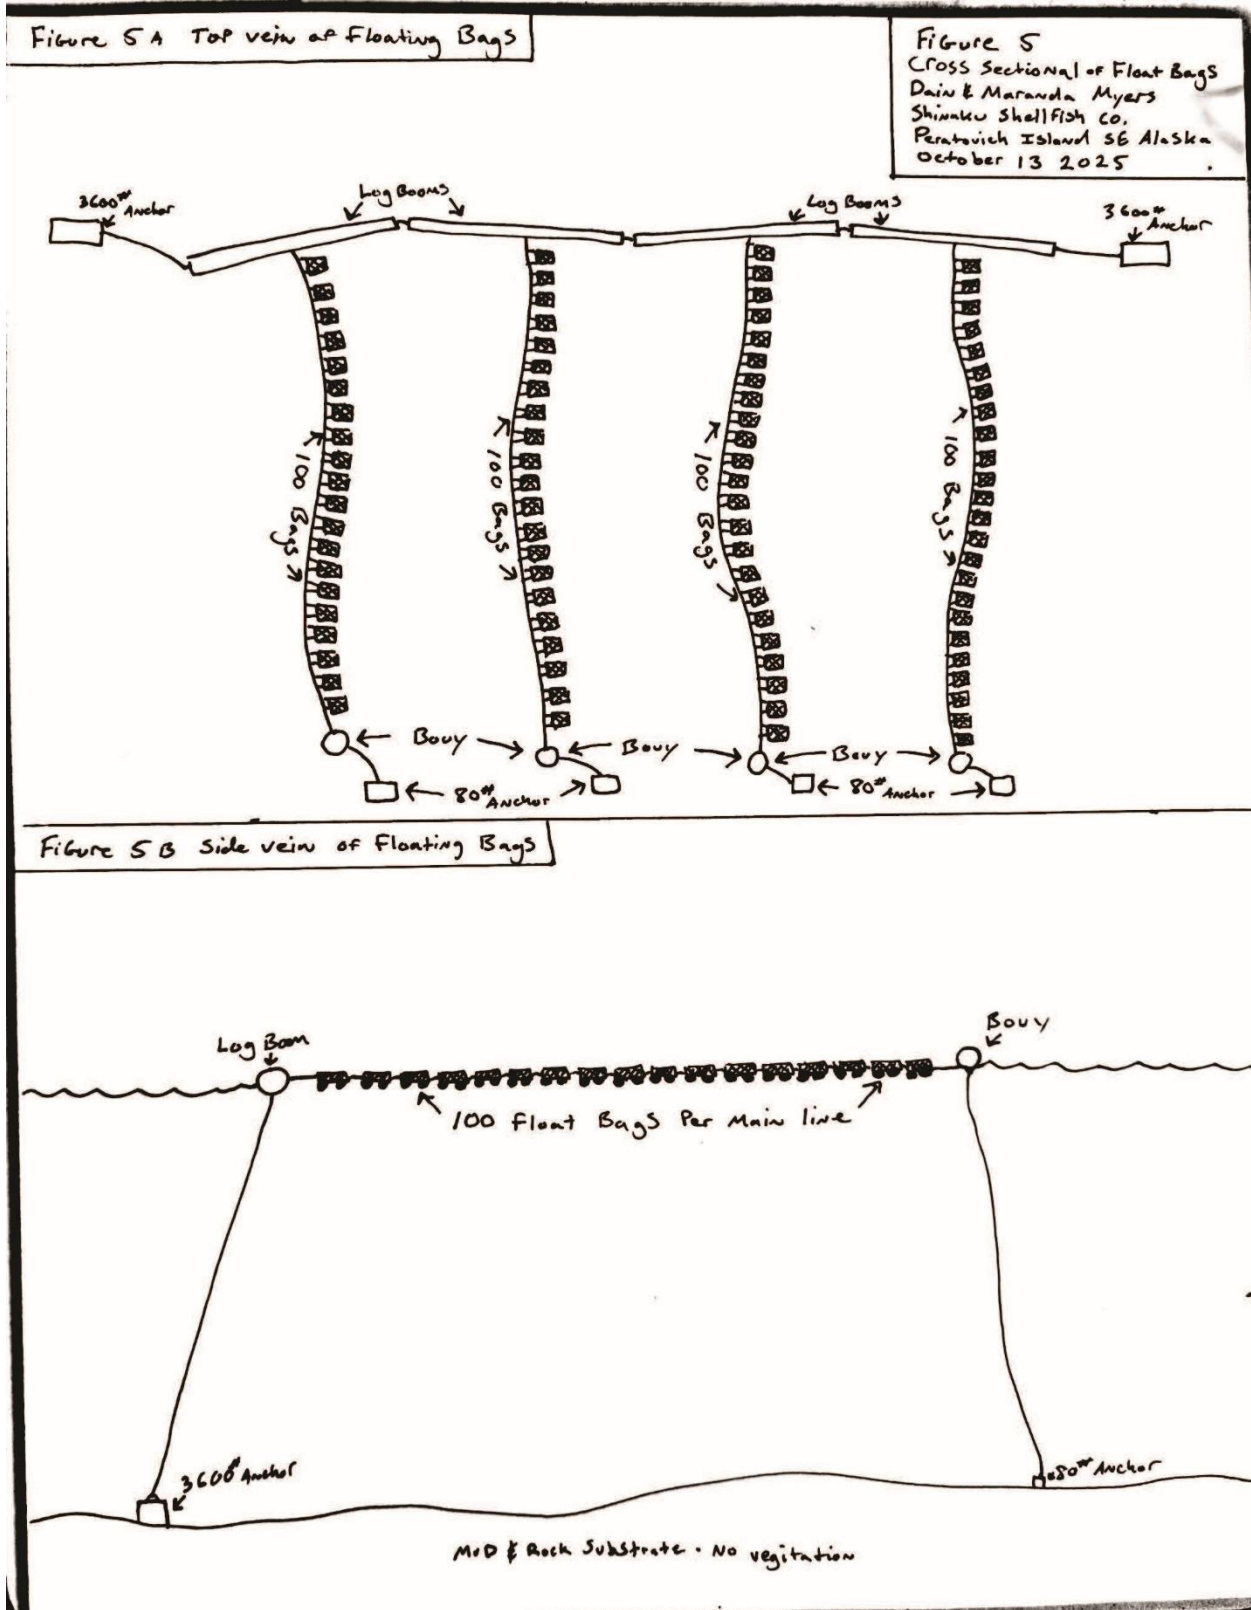 Figure 5 A Top vein of Floating Bags
Figure 5
Cross Sectional of Float Bags
Dain & Maranda Myers
Shinaku Shellfish Co.
Peratovich Island SE Alaska
October 13 2025
3600# Anchor
Log Booms
Log Booms
3600# Anchor
100 Bags
100 Bags
100 Bags
100 Bags
Bouy
Bouy
Bouy
80# Anchor
80# Anchor
Figure 5 B Side vein of Floating Bags
Log Boom
Bouy
100 Float Bags Per Main line
3600# Anchor
80# Anchor
Mud & Rock Substrate. No vegitation